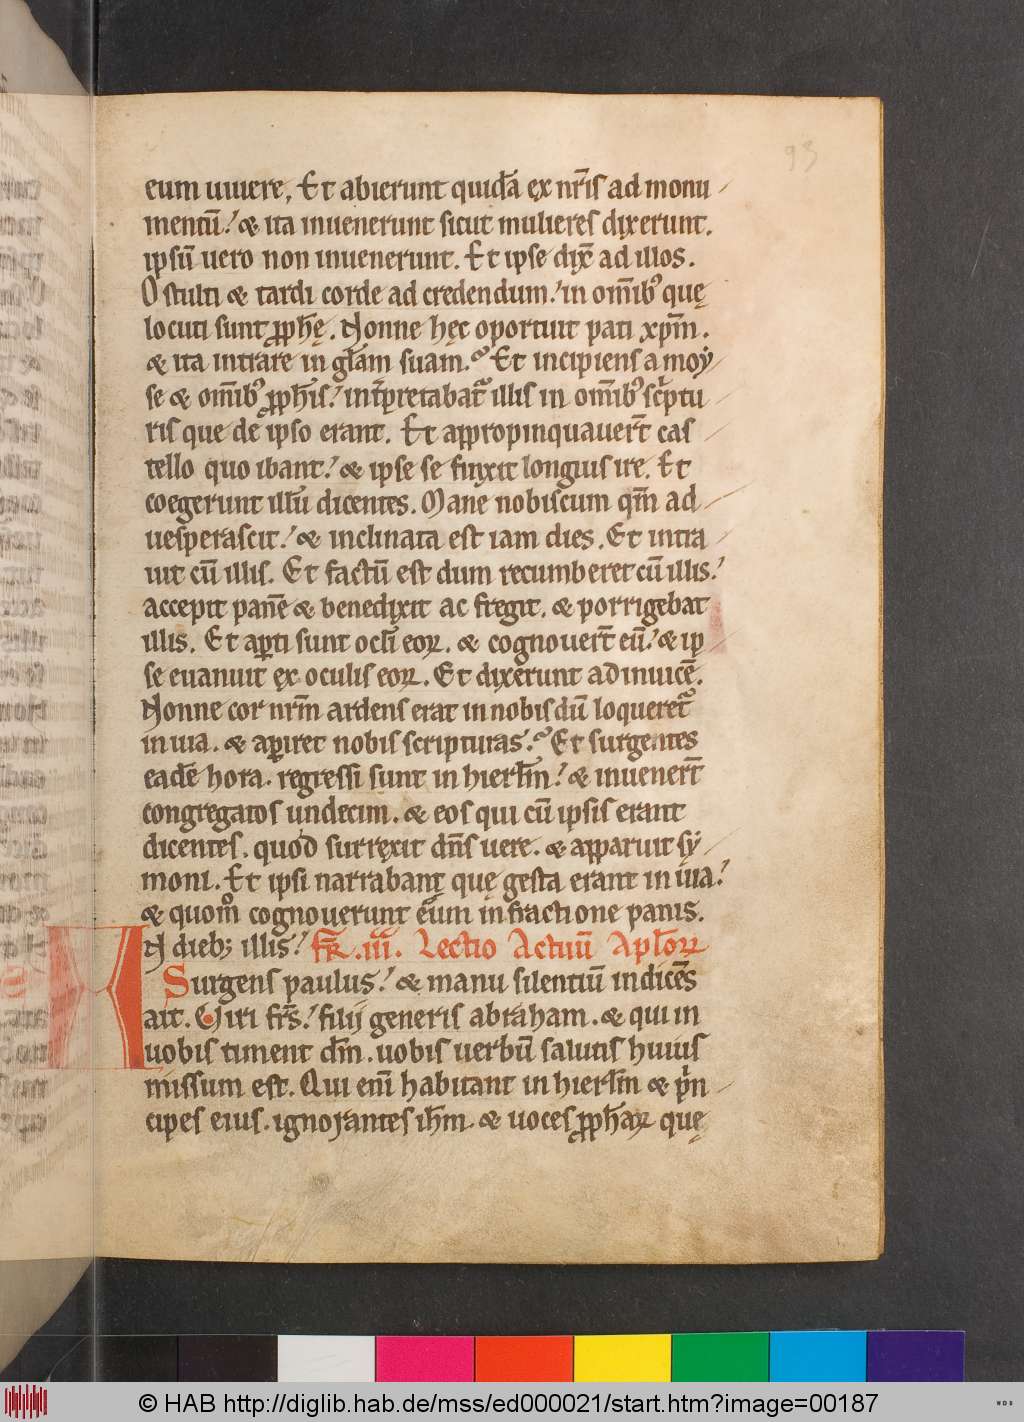 93
eum uiuere, Et abierunt quidā ęx nr̄is ad monu
mentū! & ita inuenerunt sicut mulieres dixerunt.
ipsū uero non inuenerunt. Et ipse dix̄ ad illos.
O stulti & tardi corde ad credendum! in om̄ibꝰ quę
locuti sunt ꝓph̄ę. Nonne hęc oportuit pati xp̄m.
& ita intrare in gl̄am suam.? Et incipiens a moẏ
se & om̄ibꝰ ꝓph̄is! int̄pretabat᷑ illis in om̄ibꝰ sc̄ptu
ris que de ipso erant. Et appropinquauer̄t cas
tello quo ibant! & ipse se finxit longius ire. Et
coegerunt illū dicentes. Mane nobiscum qm̄ ad
uesperascit! & inclinata est iam dies. Et intra
uit cū illis. Et factū est dum recumberet cū illis!
accepit panē & benedixit ac fregit. & porrigebat
illis. Et aꝑti sunt ocl̄i eoꝝ. & cognouer̄t eū! & ip
se euanuit ęx oculis eoꝝ. Et dixerunt ad inuicē.
Nonne cor nr̄m ardens erat in nobis dū loqueret᷑
in uia. & aꝑiret nobis scripturas.? Et surgentes
eadē hora. regressi sunt in hierl̄m! & inuener̄t
congregatos undecim. & eos qui cū ipsis erant
dicentes. quod surręxit dn̄s uere. & apparuit sẏ
moni. Et ipsi narrabant quę gesta erant in uia!
& quom̊ cognouerunt eum in fractione panis.
N dieb; illis! fr̄. iii. Lectio Actuū Apl̄oꝝ
I Surgens paulus! & manu silentiū indicēs
ait. Viri fr̄s! filij generis abraham. & qui in
uobis timent dm̄. uobis uerbū salutis huius
missum est. Qui eni habitant in hierl̄m & p̄n
cipes eius. ignorantes ih̄m. & uoces ꝓph̄aꝝ quę
© HAB http://diglib.hab.de/mss/ed000021/start.htm?image=00187